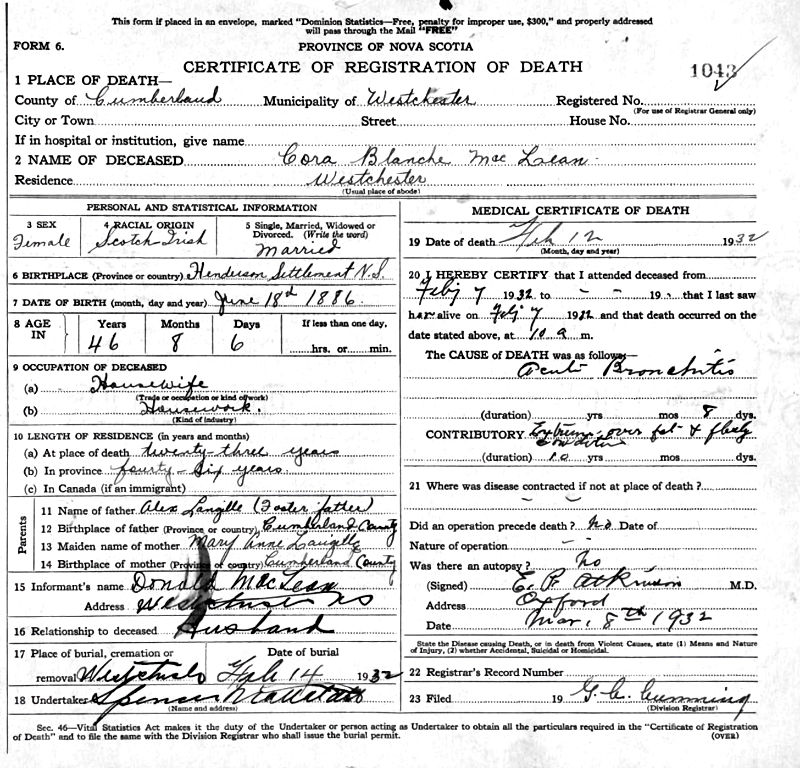 This form if placed in an envelope, marked "Dominion Statistics—Free, penalty for improper use, $300," and properly addressed
will pass through the Mail "FREE"
FORM 6.
PROVINCE OF NOVA SCOTIA
CERTIFICATE OF REGISTRATION OF DEATH
1043
1 PLACE OF DEATH—
County of Cumberland Municipality of Westchester Registered No.
(For use of Registrar General only)
City or Town Street House No.
If in hospital or institution, give name
2 NAME OF DECEASED Cora Blanche Mac Lean
Residence Westchester
(Usual place of abode)
PERSONAL AND STATISTICAL INFORMATION
3 SEX
Female
4 RACIAL ORIGIN
Scotch Irish
5 Single, Married, Widowed or
Divorced. (Write the word)
Married
6 BIRTHPLACE (Province or country) Henderson Settlement N.S.
7 DATE OF BIRTH (month, day and year) June 18th 1886
8 AGE IN
Years Months Days If less than one day,
46 8 6 hrs. or min.
9 OCCUPATION OF DECEASED
(a) Housewife
(Trade or occupation or kind of work)
(b) Housework.
(Kind of industry)
10 LENGTH OF RESIDENCE (in years and months)
(a) At place of death twenty-three years
(b) In province fourty-six years
(c) In Canada (if an immigrant)
Parents
11 Name of father Alex Langille (Foster father)
12 Birthplace of father (Province or country) Cumberland County
13 Maiden name of mother Mary Anne Langille
14 Birthplace of mother (Province or country) Cumberland County
15 Informant's name Donald MacLean
Address Westchester NS
16 Relationship to deceased Husband
17 Place of burial, cremation or Date of burial
removal Westchester Feb 14 1932
18 Undertaker Spencer
(Name and address)
MEDICAL CERTIFICATE OF DEATH
19 Date of death Feb 12 1932
(Month, day and year)
20 I HEREBY CERTIFY that I attended deceased from
Feby 7 1932 to - - 19 that I last saw
her alive on Feby 7 1932 and that death occurred on the
date stated above, at 10 a m.
The CAUSE of DEATH was as follows—
Acute Bronchitis
(duration) yrs mos 8 dys.
CONTRIBUTORY Extreme over fat & fleshy
condition
(duration) 10 yrs mos dys.
21 Where was disease contracted if not at place of death?
- -
Did an operation precede death? No Date of
Nature of operation - -
Was there an autopsy? No
(Signed) E. P. Atkinson M.D.
Address Oxford
Date Mar. 8th 1932
State the Disease causing Death, or in death from Violent Causes, state (1) Means and Nature
of Injury, (2) whether Accidental, Suicidal or Homicidal.
22 Registrar's Record Number
23 Filed 19 G. C. Cumming
(Division Registrar)
Sec. 46—Vital Statistics Act makes it the duty of the Undertaker or person acting as Undertaker to obtain all the particulars required in the "Certificate of Registration
of Death" and to file the same with the Division Registrar who shall issue the burial permit.
(OVER)